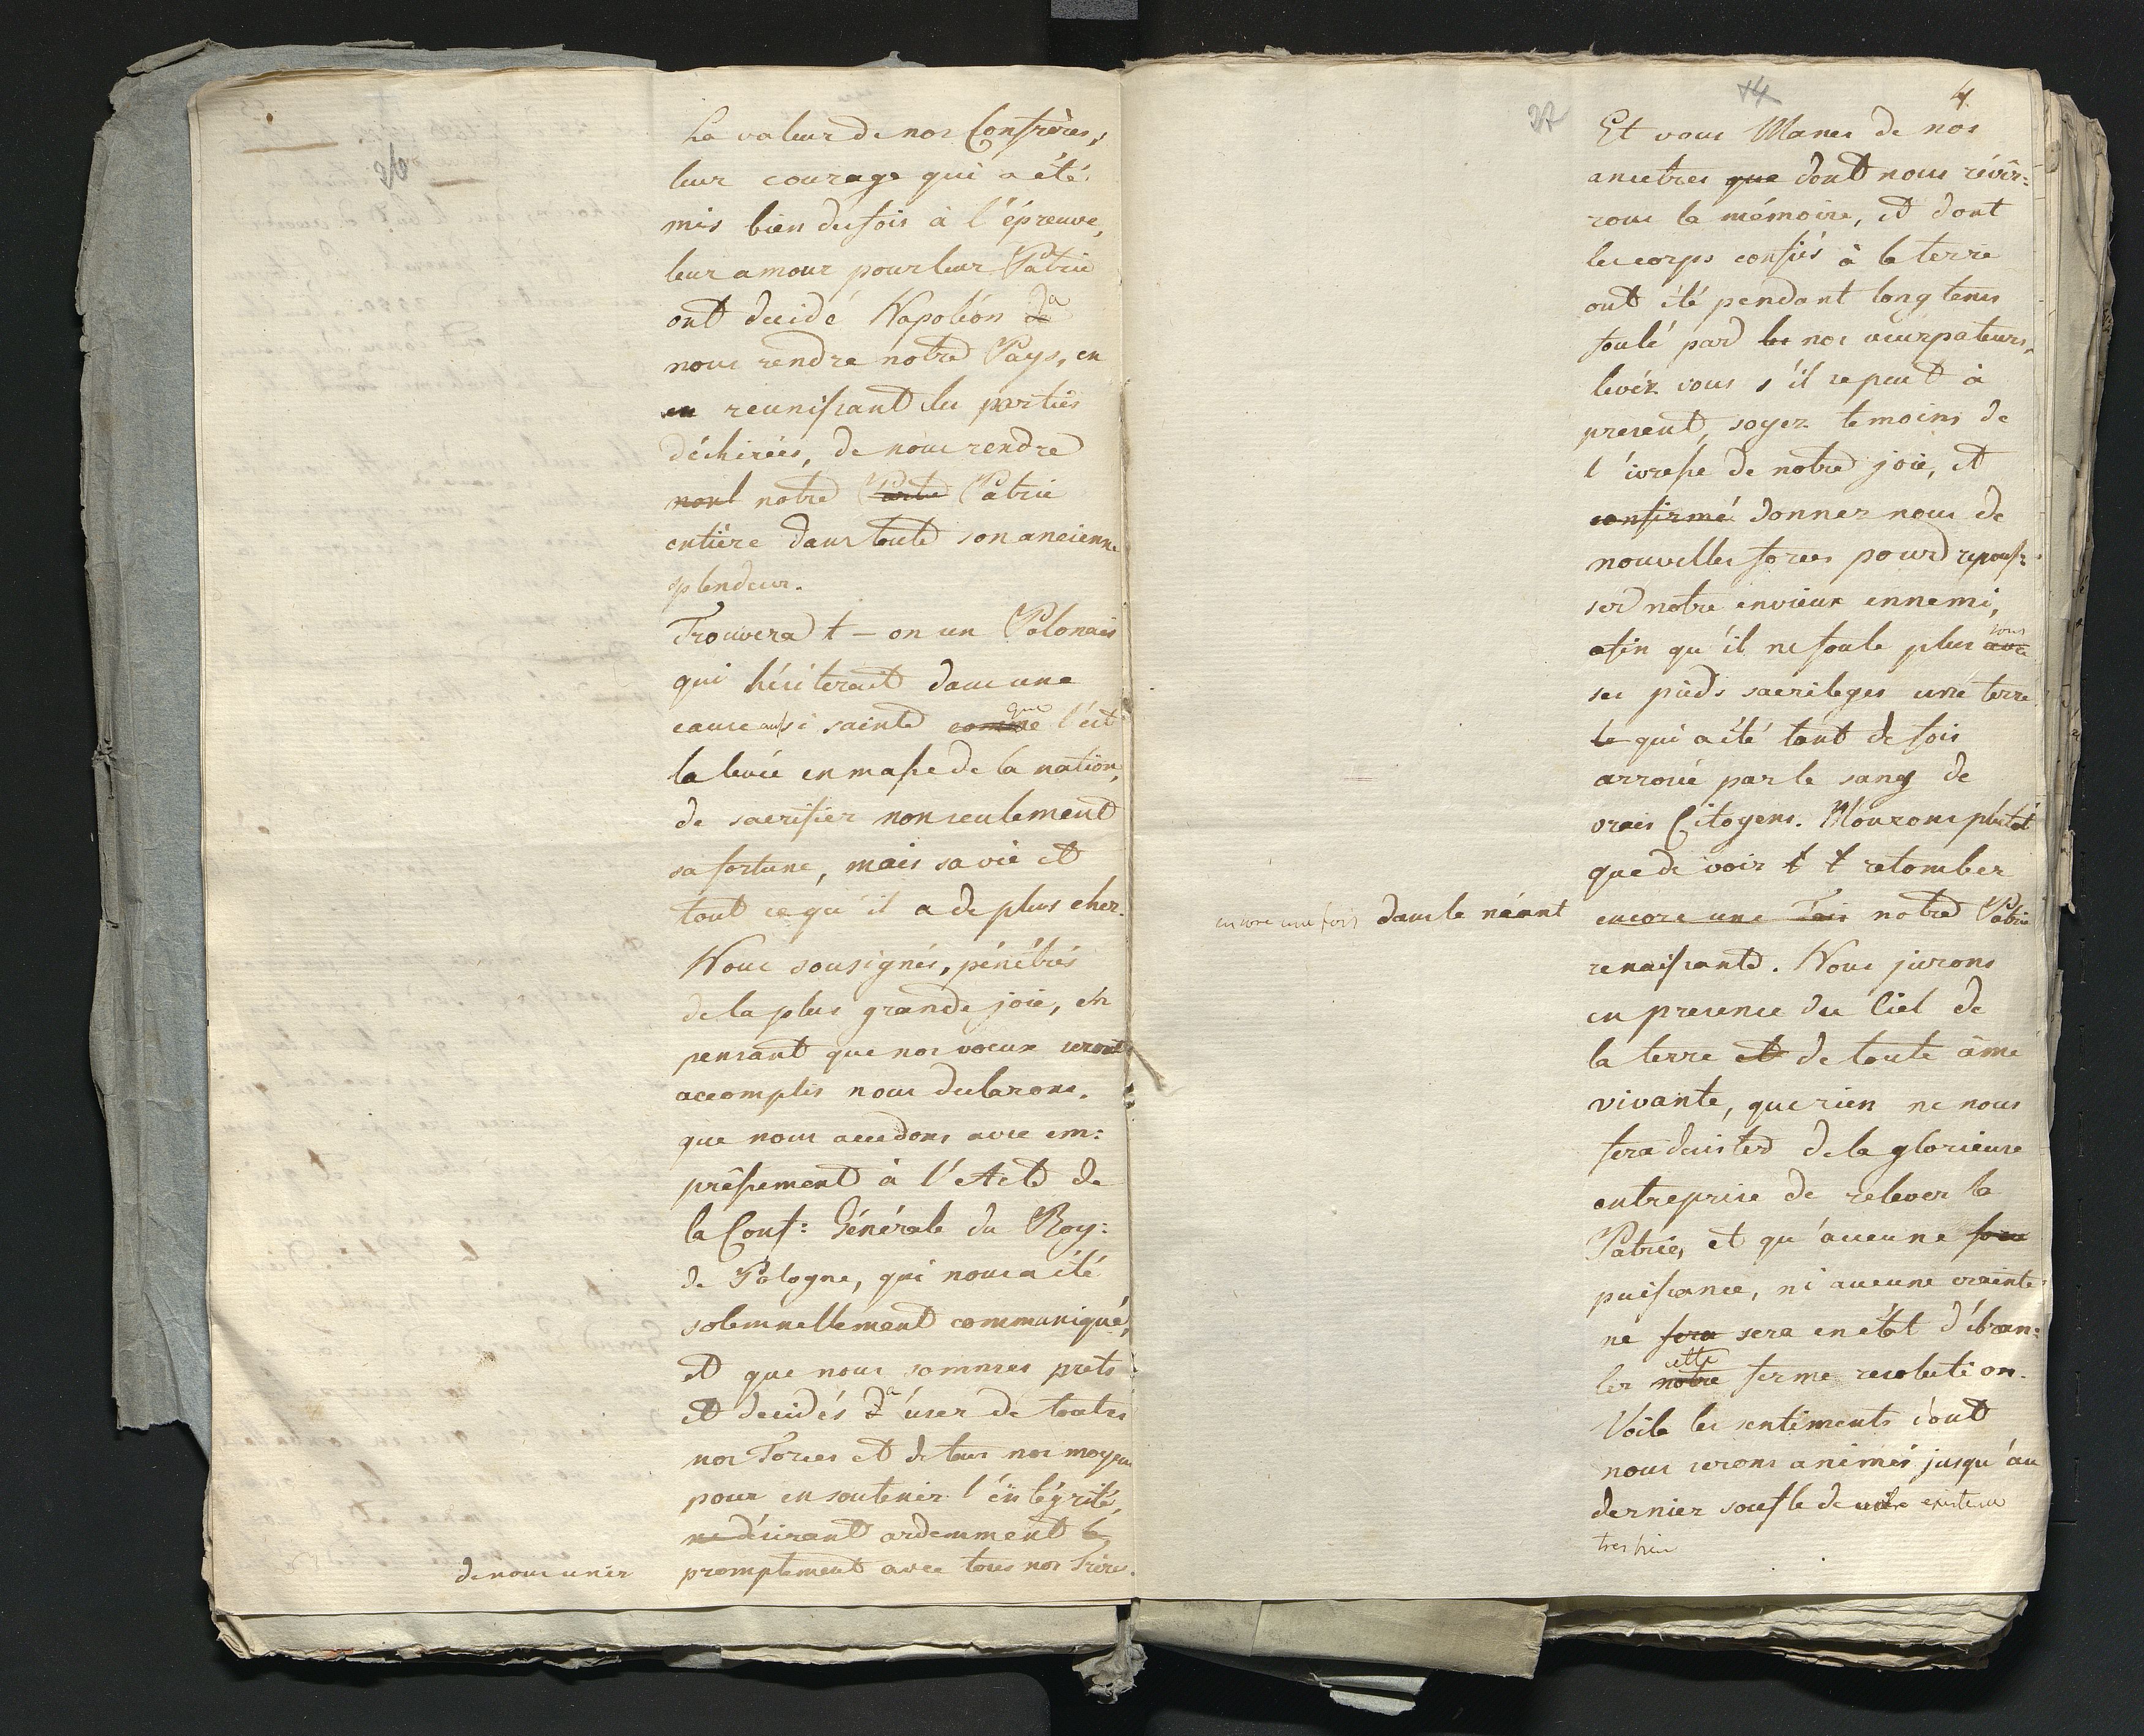 26
La valeur de nos Confrères,
leur courage qui a été
mis bien des fois à l'épreuve,
leur amour pour leur Patrie
ont decidé Napoléon de à
nous rendre notre Pays, en
en reunissant les parties
déchirées, de nous rendre
notre Patrie
entière dans toute son ancienne
splendeur.
Trouvera t-on un Polonais
qui hésiterait dans une
cause aussi sainte comme que l'est
la levée en masse de la nation,
de sacrifier non seulement
sa fortune, mais sa vie et
tout ce qu'il a de plus cher.
Nous sousignés, pénétrés
de la plus grande joie, en
pensant que nos voeux seront
accomplis nous declarons,
que nous accedons avec em:
prêssement à l'Acte de
la Conf: Générale du Roy:
de Pologne, qui nous a été
solemnellement communiqué,
et que nous sommes prets
et decidés d' à user de toutes
nos Forces et de tous nos moyens
pour en soutenir l'intégrité,
desirant ardemment
de nous unir promptement avec tous nos Frères.
27 14 4.
Et vous Manes de nos
ancetres que dont nous révér:
rons la mémoire, et dont
les corps confiés à la terre
ont été pendant long tems
foulé par les nos usurpateurs,
levéz vous s'il se peut à
present, soyez temoins de
l'ivresse de notre joie, et
confirmé donnez nous de
nouvelles forces pour repous:
ser notre envieux ennemi,
afin qu'il ne foule plus avec sous
ses pieds sacrileges une terre
le qui a été tant de fois
arrosée par le sang de
vrais Citoyens. Mourons plutot
que de voir t t retomber
encore une fois dans le néant encore une fois notre Patrie
renaissante. Nous jurons
en presence du Ciel de
la terre et de toute âme
vivante, que rien ne nous
fera desister de la glorieuse
entreprise de relever la
Patrie, et qu'aucune
puissance, ni aucune crainte
ne fera sera en état d'ébran:
ler notre cette ferme resolution.
Voila les sentiments dont
nous serons animés jusqu'au
dernier soufle de notre existence